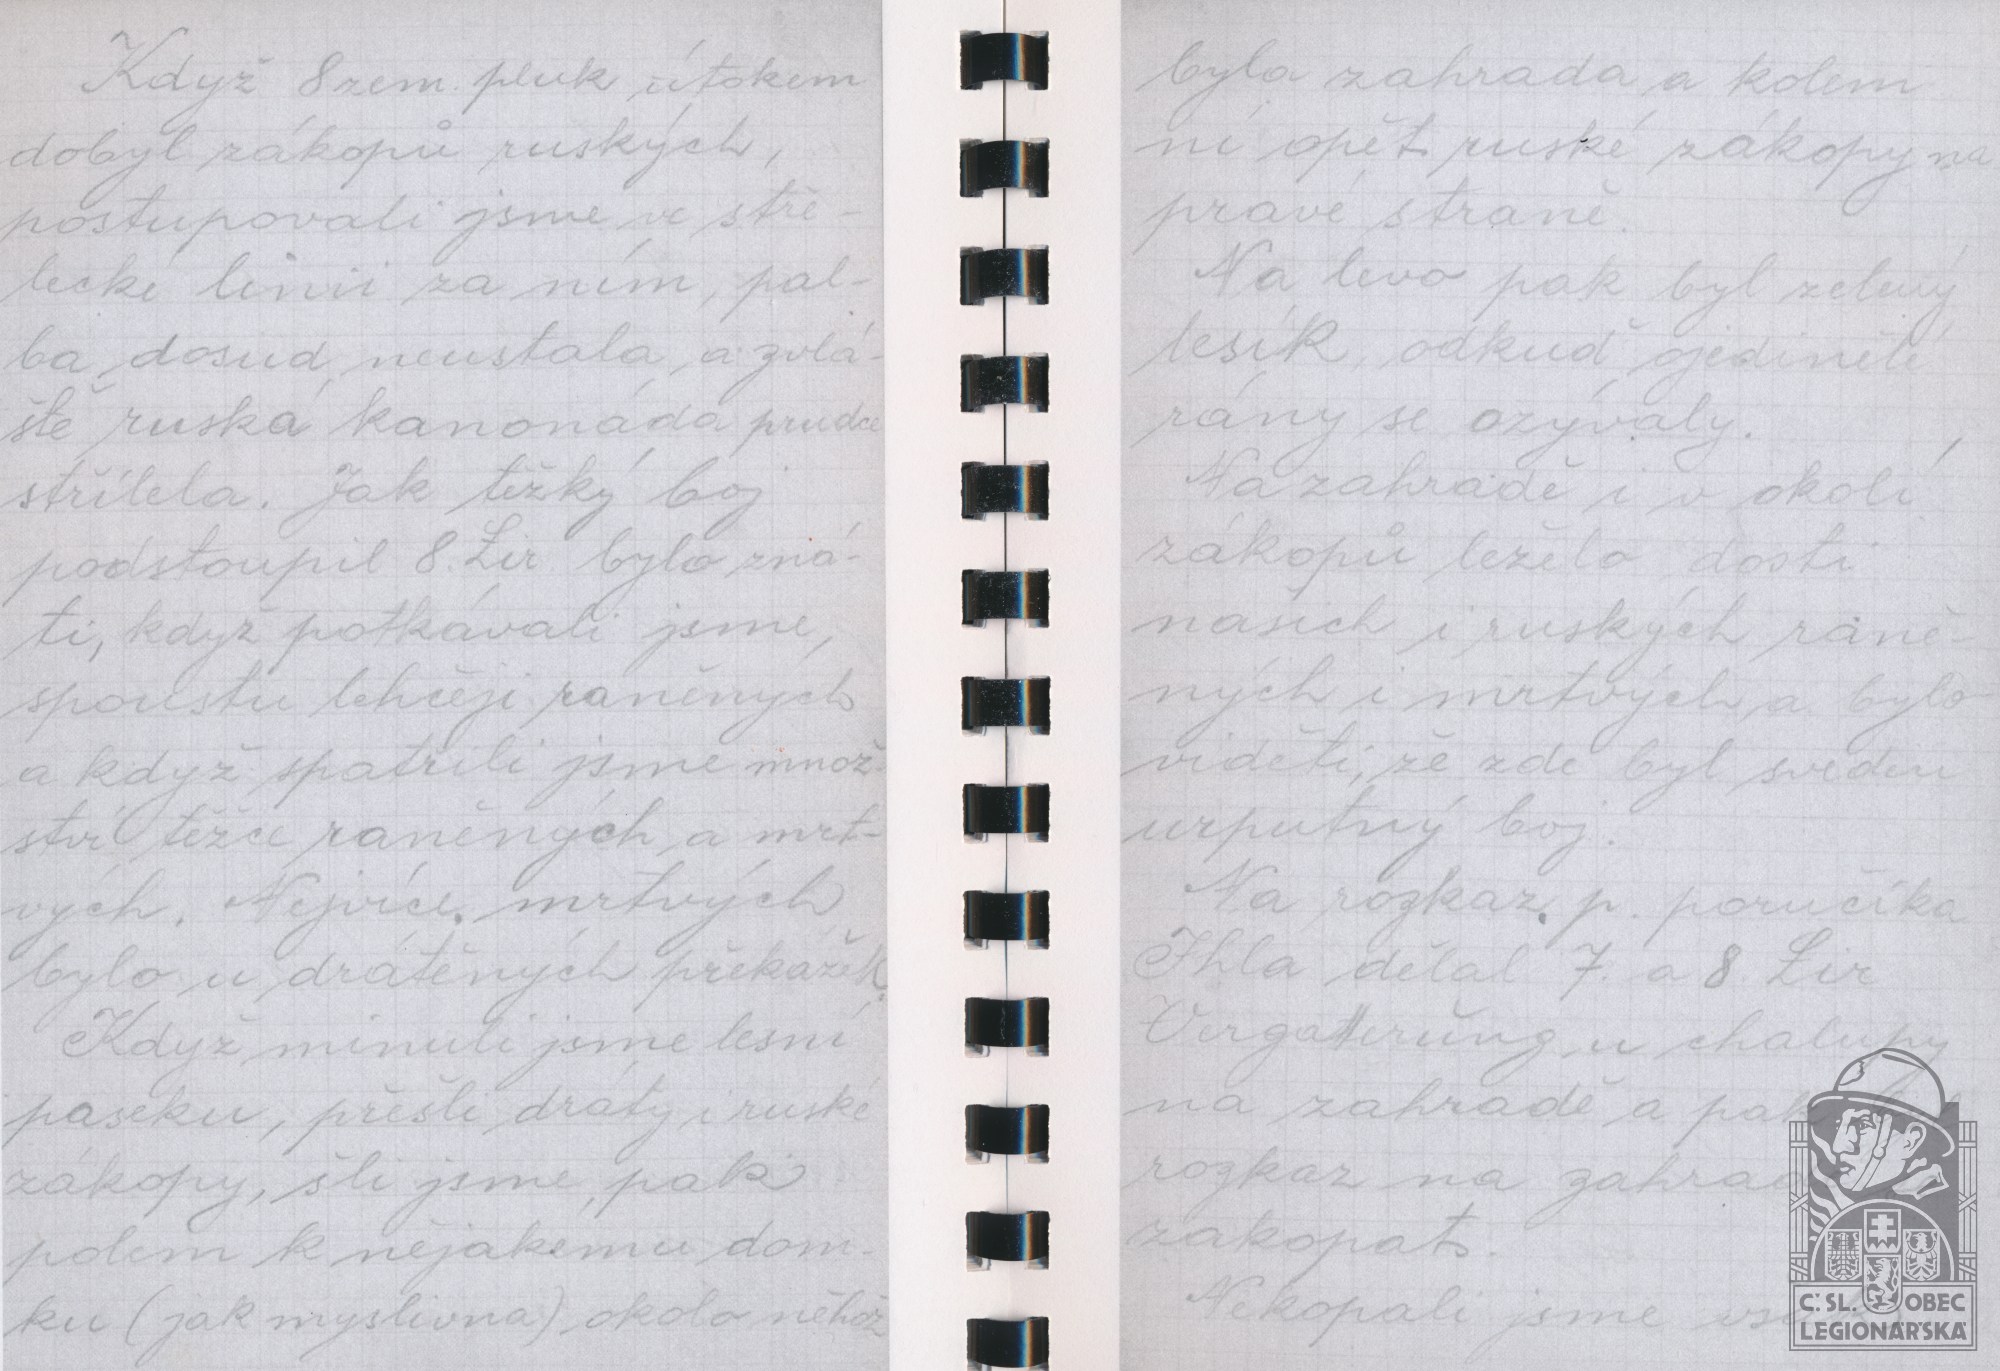 Když 8 zem. pluk útokem
dobyl zákopů ruských,
postupovali jsme ve stře-
lecké linii za ním, pal-
ba dosud neustala, a zvlá-
ště ruská kanonáda prudce
střílela. Jak těžký boj
podstoupil 8. Lir bylo zná-
ti, když potkávali jsme,
spoustu lehčeji raněných
a když spatřili jsme množ-
ství těžce raněných, a mrt-
vých. Nejvíce mrtvých
bylo u drátěných překážek.
Když minuli jsme lesní
paseku, přešli dráty i ruské
zákopy, šli jsme, pak
polem k nějakému dom-
ku (jak myslivna) okolo něhož
byla zahrada a kolem
ní opět ruské zákopy na
pravé straně.
Na levo pak byl zelený
lesík, odkuď ojediněle
rány se ozývaly.
Na zahradě i v okolí
zákopů leželo dosti
našich i ruských raně-
ných i mrtvých, a bylo
viděti, že zde byl sveden
urputný boj.
Na rozkaz p. poručíka
Ihla dělal 7. a 8. Lir
Vergatterung u chalupy
na zahradě a pak
rozkaz na zahrad
zakopat.
Nekopali jsme
Č. SL. OBEC
LEGIONÁŘSKÁ